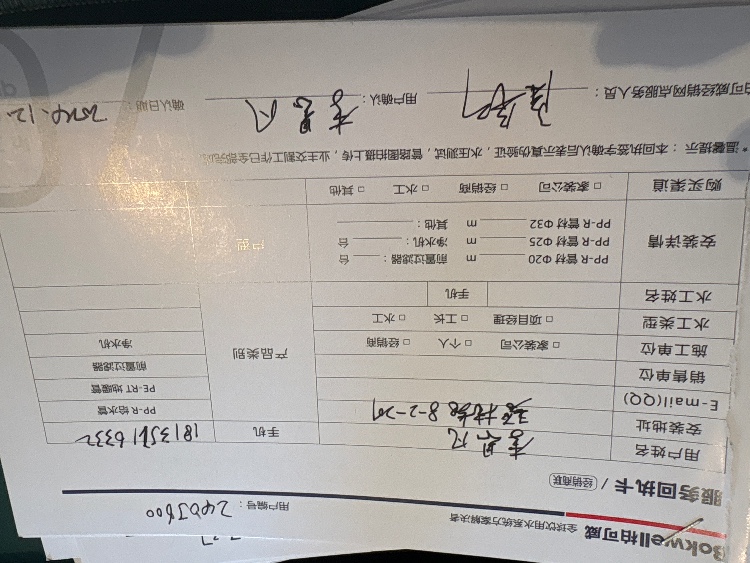 Bokwell柏可威 全球饮用水系统方案解决者
用户编号：2405800
服务回执卡 / 经销商联
用户姓名 手机 1813561 6332
安装地址 8-2-201
E-mail(QQ) PP-R 给水管
销售单位 PE-RT 地暖管
施工单位 □ 家装公司 □ 个人 □ 经销商 产品类别 前置过滤器
水工类型 □ 项目经理 □ 工长 □ 水工 净水机
水工姓名 手机
安装详情 PP-R 管材 Φ20 m 前置过滤器： 台 户型
PP-R 管材 Φ25 m 净水机： 台
PP-R 管材 Φ32 m 其他：
购买渠道 □ 家装公司 □ 经销商 □ 水工 □ 其他
* 温馨提示：本回执签字确认后表示真伪验证，水压测试，管路图拍摄上传，业主交割工作已全部完
柏可威经销网点服务人员： 用户确认： 确认日期：2024.12